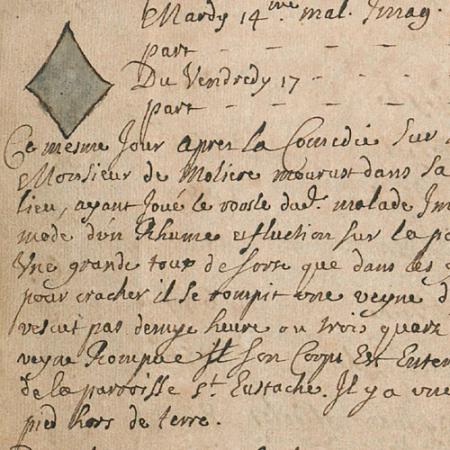 Mardy 14me mal. Imag.
part - - - -
Du Vendredy 17 - -
part - - - -
Ce mesme Jour apres la Comedie sur
Monsieur de Moliere mourust dans sa
lieu, ayant Joué le roosle dud. malade Im
mode d'un Rhume et fluction sur la po
Une grande toux de sorte que dans
pour cracher il se rompit une veyne d
vescut pas demye heure ou trois quarz
veyne Rompue son Corps Est Enter
de la parroisse St. Eustache. Il y a vne
pied hors de terre.